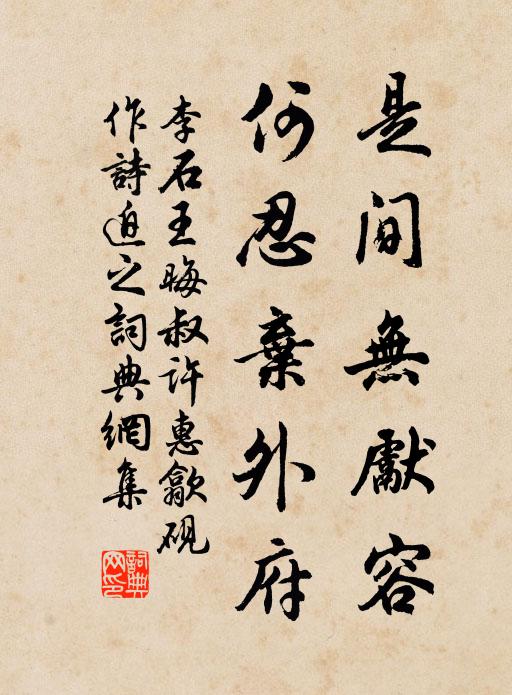 是間無獻容
何忍棄外府
李石王晦叔許惠歙硯
作詩迫之詞典網集
詞典網印